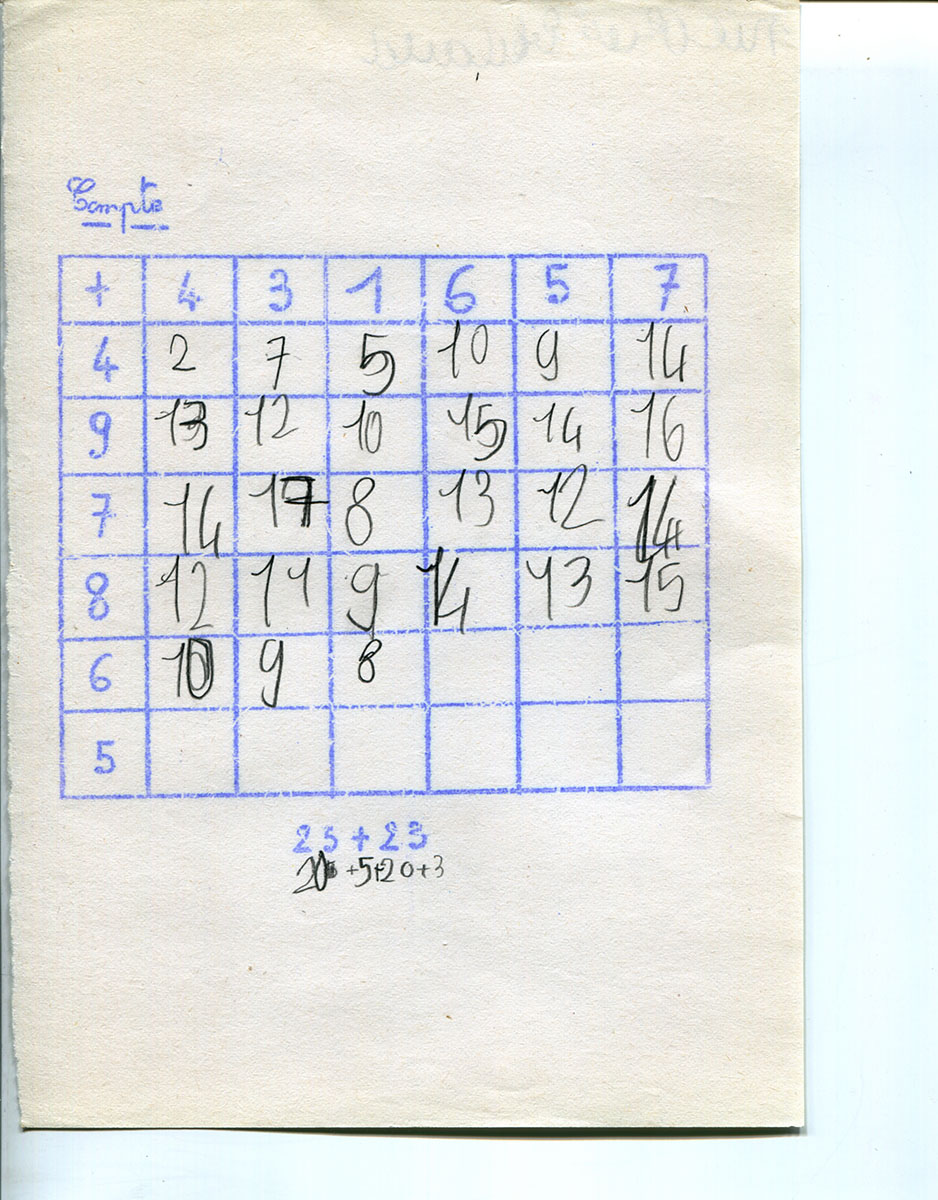 Compte
+ 4 3 1 6 5 7
4 2 7 5 10 9 14
9 13 12 10 15 14 16
7 14 17 8 13 12 14
8 12 11 9 14 13 15
6 10 9 8
5
25+23
20 +5+20+3